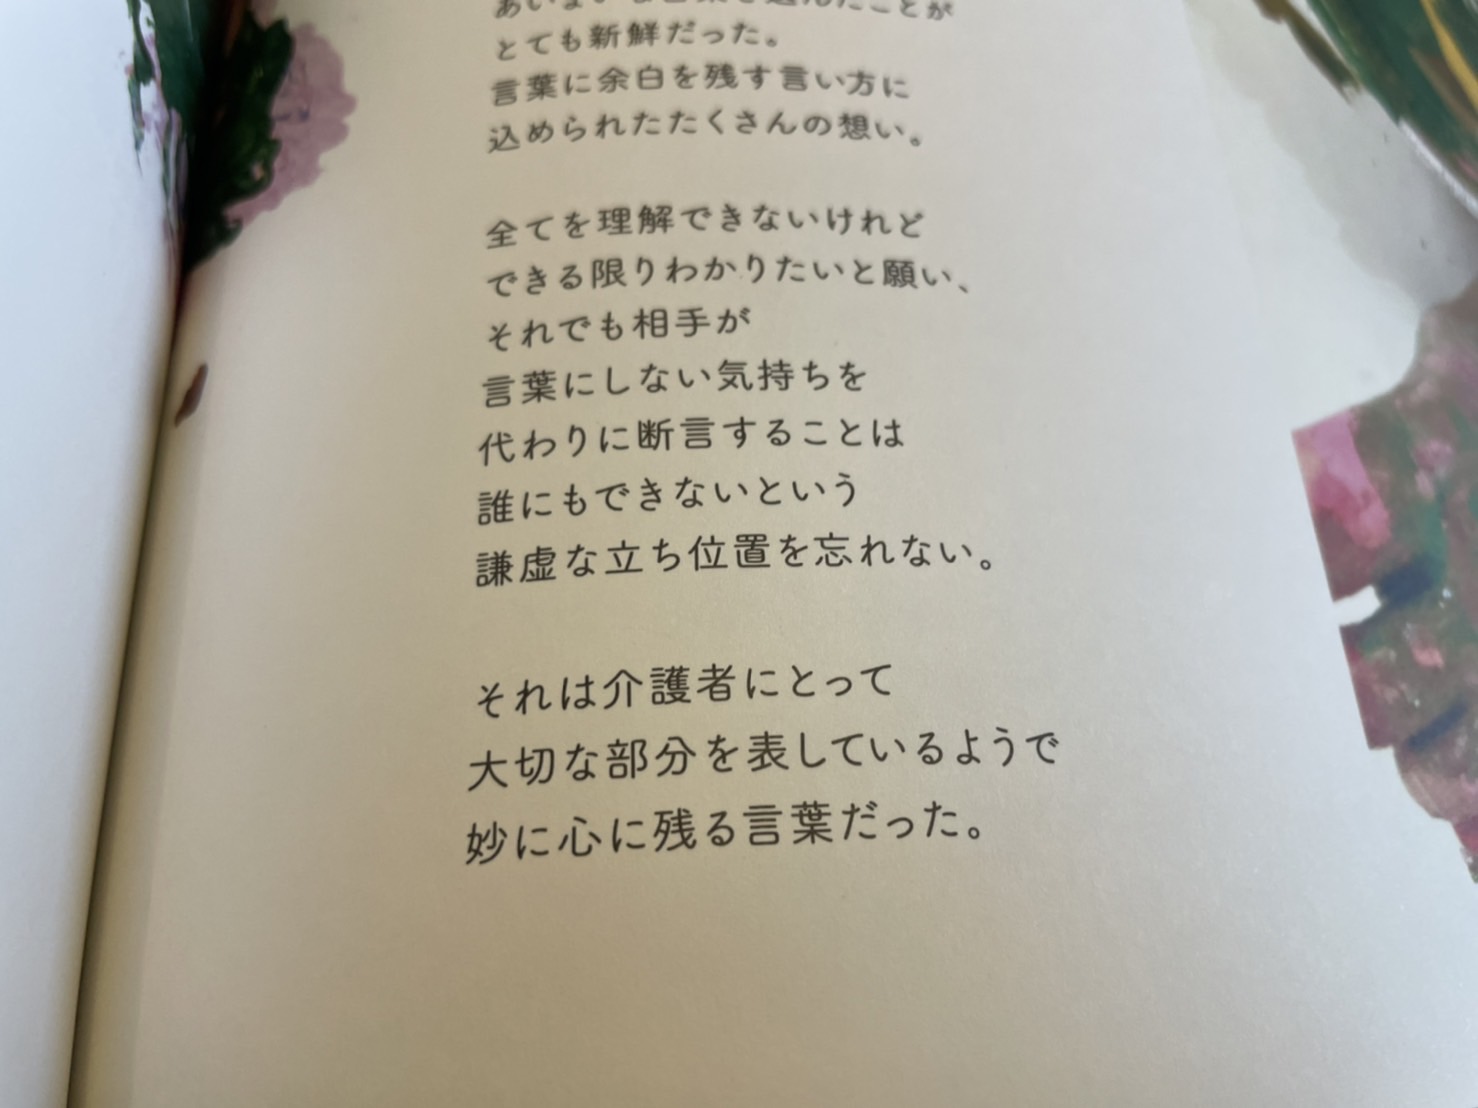 あいまいな言葉を選んだことが
とても新鮮だった。
言葉に余白を残す言い方に
込められたたくさんの想い。
全てを理解できないけれど
できる限りわかりたいと願い、
それでも相手が
言葉にしない気持ちを
代わりに断言することは
誰にもできないという
謙虚な立ち位置を忘れない。
それは介護者にとって
大切な部分を表しているようで
妙に心に残る言葉だった。